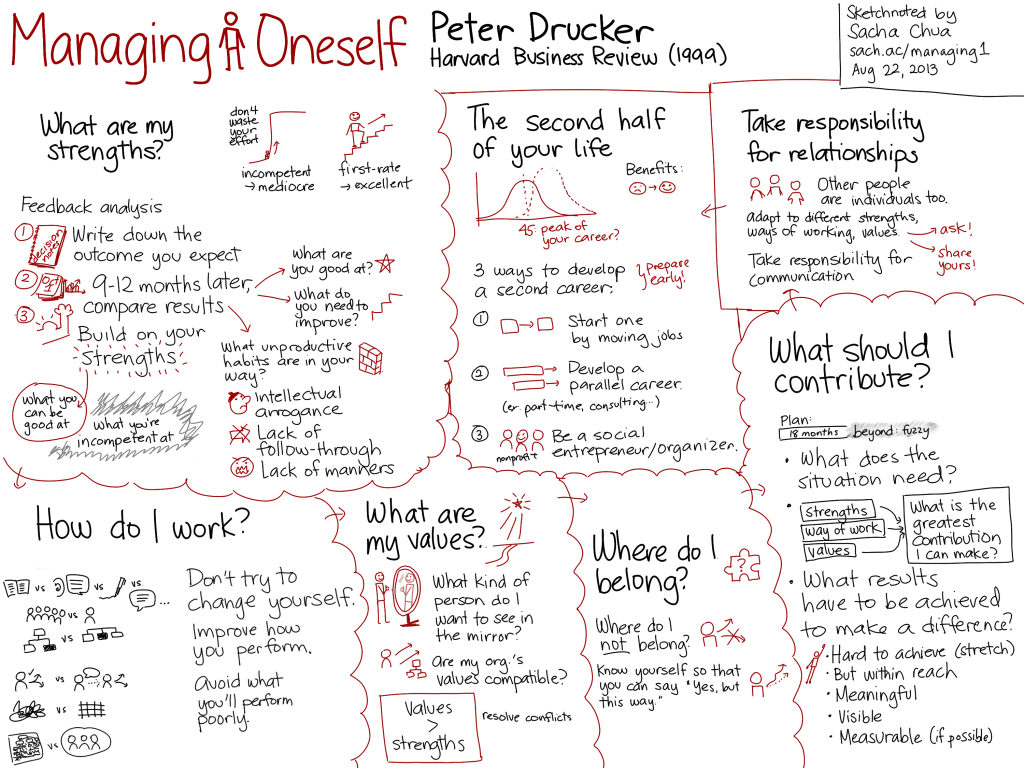 Managing Oneself
Peter Drucker
Harvard Business Review (1999)
Sketchnoted by
Sacha Chua
sach.ac/managing1
Aug 22, 2013
What are my
strengths?
don't
waste
your
effort
incompetent
→ mediocre
first-rate
→ excellent
Feedback analysis
1
Decision
notes
Write down the
outcome you expect
2
9-12 months later,
compare results
3
Build on your
strengths
What are
you good at?
What do
you need to
improve?
What unproductive
habits are in your
way?
Intellectual
arrogance
Lack of
follow-through
Lack of manners
what you
can be
good at
what you're
incompetent at
The second half
of your life
Benefits:
45: peak of
your career?
3 ways to develop
a second career:
prepare
early!
1
Start one
by moving jobs
2
Develop a
parallel career.
(ex. part-time, consulting...)
3
nonprofit
Be a social
entrepreneur/organizer.
Take responsibility
for relationships
Other people
are individuals too.
adapt to different strengths,
ways of working, values.
→ ask!
share
yours!
Take responsibility for
communication.
How do I work?
vs
vs
vs.
...
vs
vs
vs
vs
vs
Don't try to
change yourself.
Improve how
you perform.
Avoid what
you'll perform
poorly.
What are
my values?
What kind of
person do I
want to see in
the mirror?
Are my org.'s
values compatible?
Values
>
strengths
resolve conflicts
Where do I
belong?
?
Where do I
not belong?
Know yourself so that
you can say "Yes, but
this way."
What should I
contribute?
Plan:
18 months
beyond: fuzzy
• What does the
situation need?
• strengths
way of work
values
What is the
greatest
contribution
I can make?
• What results
have to be achieved
to make a difference?
• Hard to achieve (stretch)
• But within reach
• Meaningful
• Visible
• Measurable (if possible)